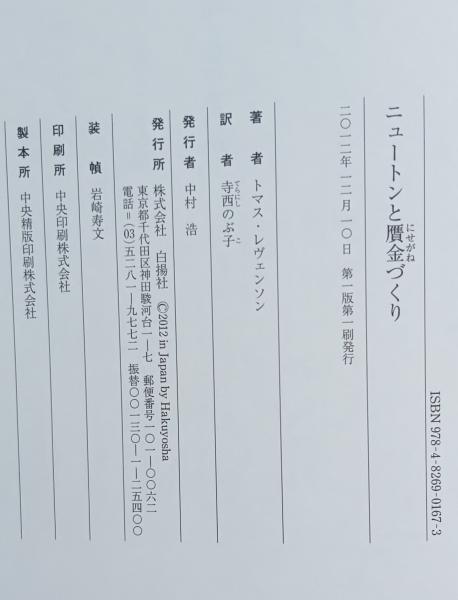 ISBN 978-4-8269-0167-3
ニュートンと贋金づくり
にせがね
二〇一二年一二月一〇日　第一版第一刷発行
著者　トマス・レヴェンソン
訳者　寺西のぶ子
てらにし　こ
発行者　中村　浩
発行所　株式会社　白揚社　©2012 in Japan by Hakuyosha
東京都千代田区神田駿河台一—七　郵便番号一〇一—〇〇六二
電話＝(03)五二八一—九七七二　振替〇〇一三〇—一—二五四〇〇
装幀　岩崎寿文
印刷所　中央印刷株式会社
製本所　中央精版印刷株式会社